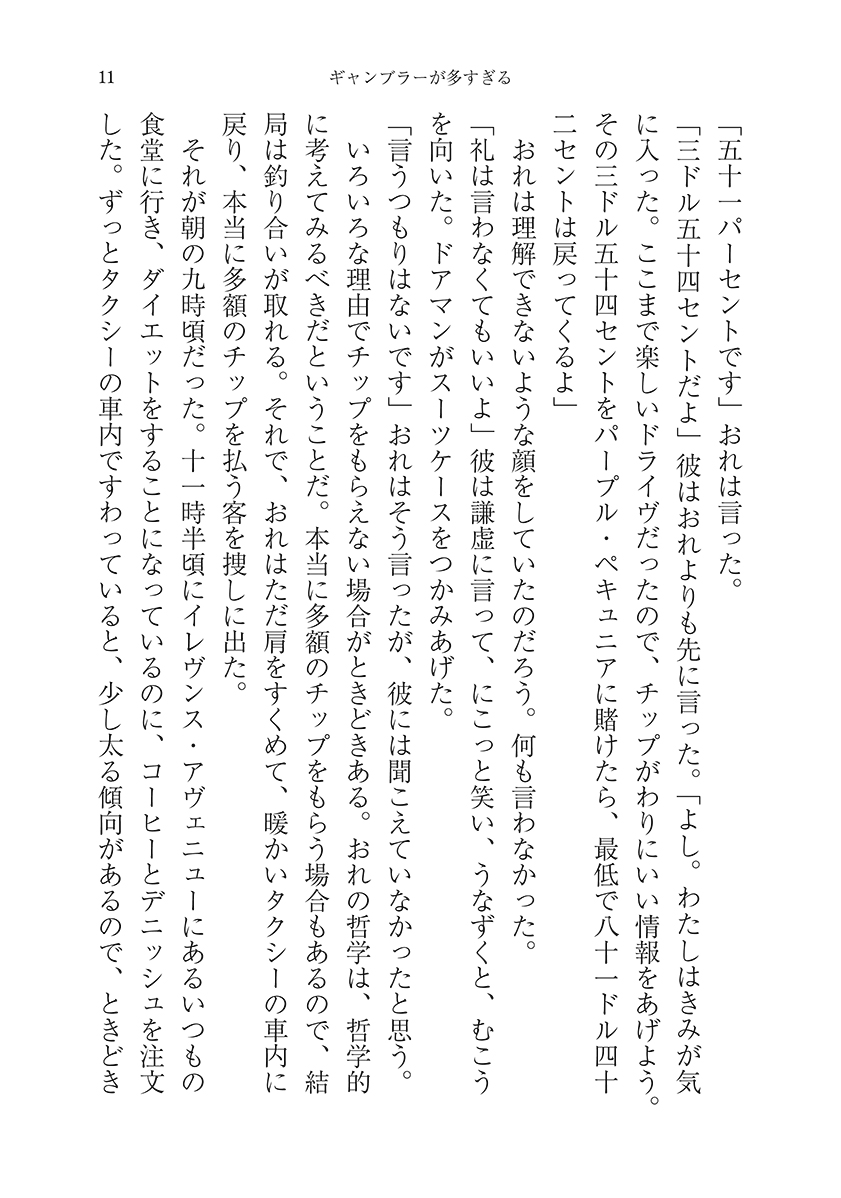 11
ギャンブラーが多すぎる
「五十一パーセントです」おれは言った。
「三ドル五十四セントだよ」彼はおれよりも先に言った。「よし。わたしはきみが気
に入った。ここまで楽しいドライヴだったので、チップがわりにいい情報をあげよう。
その三ドル五十四セントをパープル・ペキュニアに賭けたら、最低で八十一ドル四十
二セントは戻ってくるよ」
おれは理解できないような顔をしていたのだろう。何も言わなかった。
「礼は言わなくてもいいよ」彼は謙虚に言って、にこっと笑い、うなずくと、むこう
を向いた。ドアマンがスーツケースをつかみあげた。
「言うつもりはないです」おれはそう言ったが、彼には聞こえていなかったと思う。
いろいろな理由でチップをもらえない場合がときどきある。おれの哲学は、哲学的
に考えてみるべきだということだ。本当に多額のチップをもらう場合もあるので、結
局は釣り合いが取れる。それで、おれはただ肩をすくめて、暖かいタクシーの車内に
戻り、本当に多額のチップを払う客を捜しに出た。
それが朝の九時頃だった。十一時半頃にイレヴンス・アヴェニューにあるいつもの
食堂に行き、ダイエットをすることになっているのに、コーヒーとデニッシュを注文
した。ずっとタクシーの車内ですわっていると、少し太る傾向があるので、ときどき